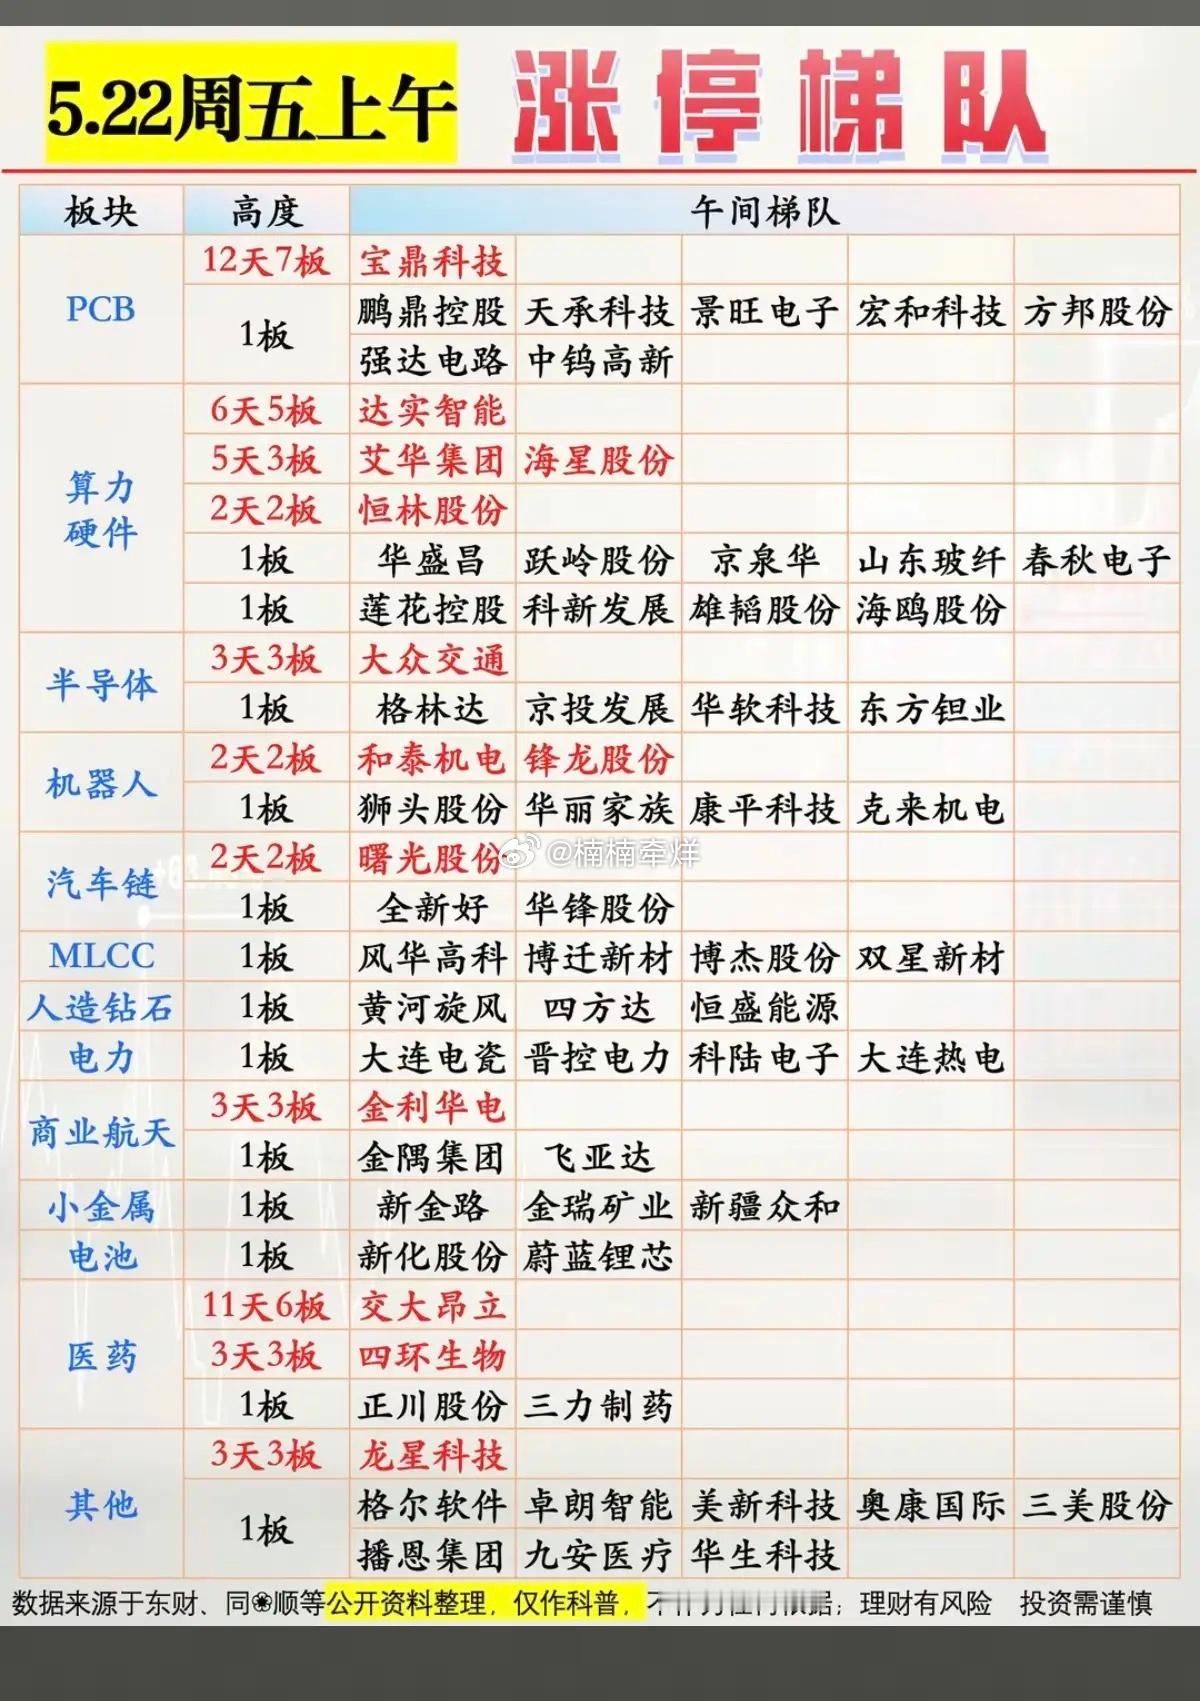 5.22周五上午 涨停梯队
板块 高度 午间梯队
PCB
12天7板 宝鼎科技
1板 鹏鼎控股 天承科技 景旺电子 宏和科技 方邦股份
强达电路 中钨高新
算力硬件
6天5板 达实智能
5天3板 艾华集团 海星股份
2天2板 恒林股份
1板 华盛昌 跃岭股份 京泉华 山东玻纤 春秋电子
1板 莲花控股 科新发展 雄韬股份 海鸥股份
半导体
3天3板 大众交通
1板 格林达 京投发展 华软科技 东方钽业
机器人
2天2板 和泰机电 锋龙股份
1板 狮头股份 华丽家族 康平科技 克来机电
汽车链
2天2板 曙光股份
@楠楠牵烊
1板 全新好 华锋股份
MLCC 1板 风华高科 博迁新材 博杰股份 双星新材
人造钻石 1板 黄河旋风 四方达 恒盛能源
电力 1板 大连电瓷 晋控电力 科陆电子 大连热电
商业航天
3天3板 金利华电
1板 金隅集团 飞亚达
小金属 1板 新金路 金瑞矿业 新疆众和
电池 1板 新化股份 蔚蓝锂芯
医药
11天6板 交大昂立
3天3板 四环生物
1板 正川股份 三力制药
其他
3天3板 龙星科技
1板 格尔软件 卓朗智能 美新科技 奥康国际 三美股份
播恩集团 九安医疗 华生科技
数据来源于东财、同❀顺等公开资料整理，仅作科普，理财有风险 投资需谨慎